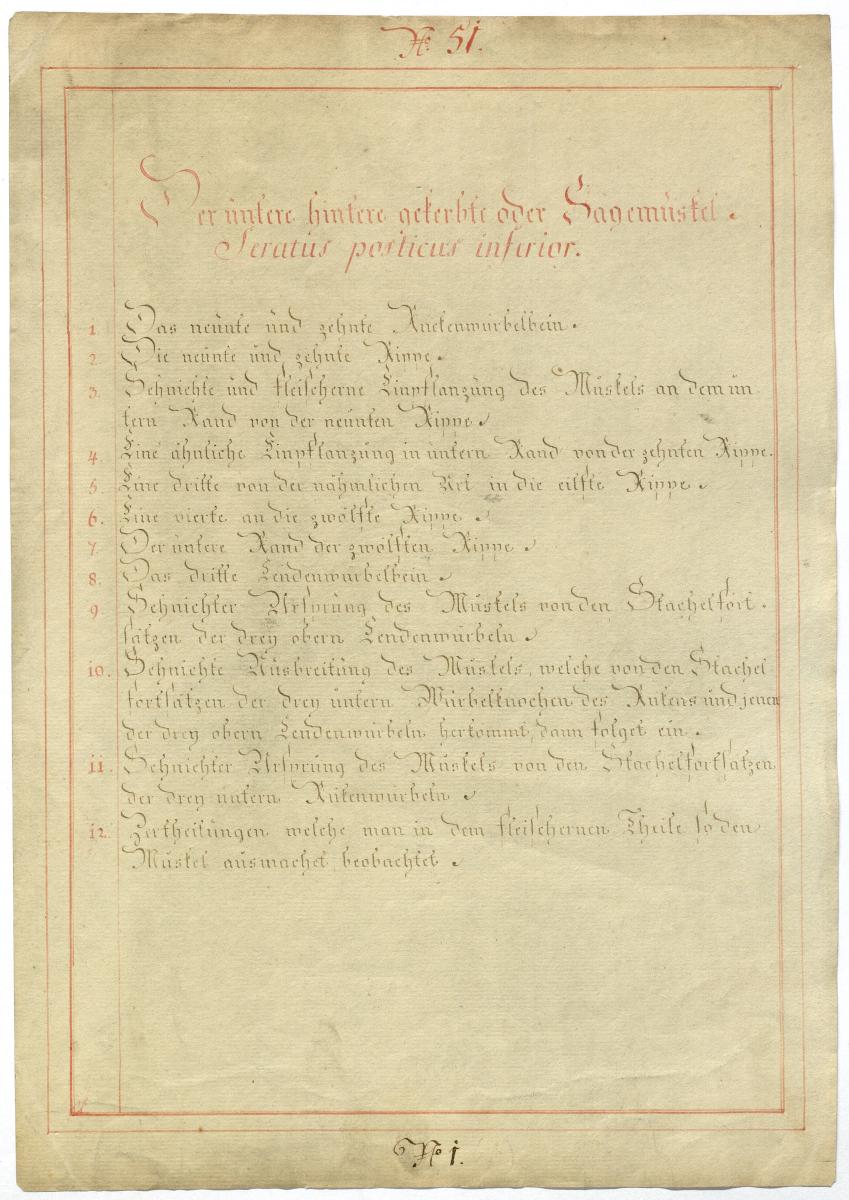 No. 51.
Der untere hintere gekerbte oder Sägemuskel.
Seratus posticus inferior.
1. Das neunte und zehnte Ruckenwürbelbein.
2. Die neunte und zehnte Rippe.
3. Sehnichte und fleischerne Einpflanzung des Muskels an dem un
tern Rand von der neunten Rippe.
4. Eine ähnliche Einpflanzung in untern Rand von der zehnten Rippe.
5. Eine dritte von der nähmlichen Art in die eilfte Rippe.
6. Eine vierte an die zwölfte Rippe.
7. Der untere Rand der zwölften Rippe.
8. Das dritte Lendenwürbelbein.
9. Sehnichter Ursprung des Muskels von den Stachelfort-
sätzen der drey obern Lendenwürbeln.
10. Sehnichte Ausbreitung des Muskels, welche von den Stachel
fortsätzen der drey untern Würbelknochen des Rukens und jenen
der drey obern Lendenwürbeln herkommt, dann folget ein.
11. Sehnichter Ursprung des Muskels von den Stachelfortsätzen
der drey untern Rukenwürbeln.
12. Zertheilungen welche man in dem fleischernen Theile so den
Muskel ausmachet, beobachtet.
No 1.